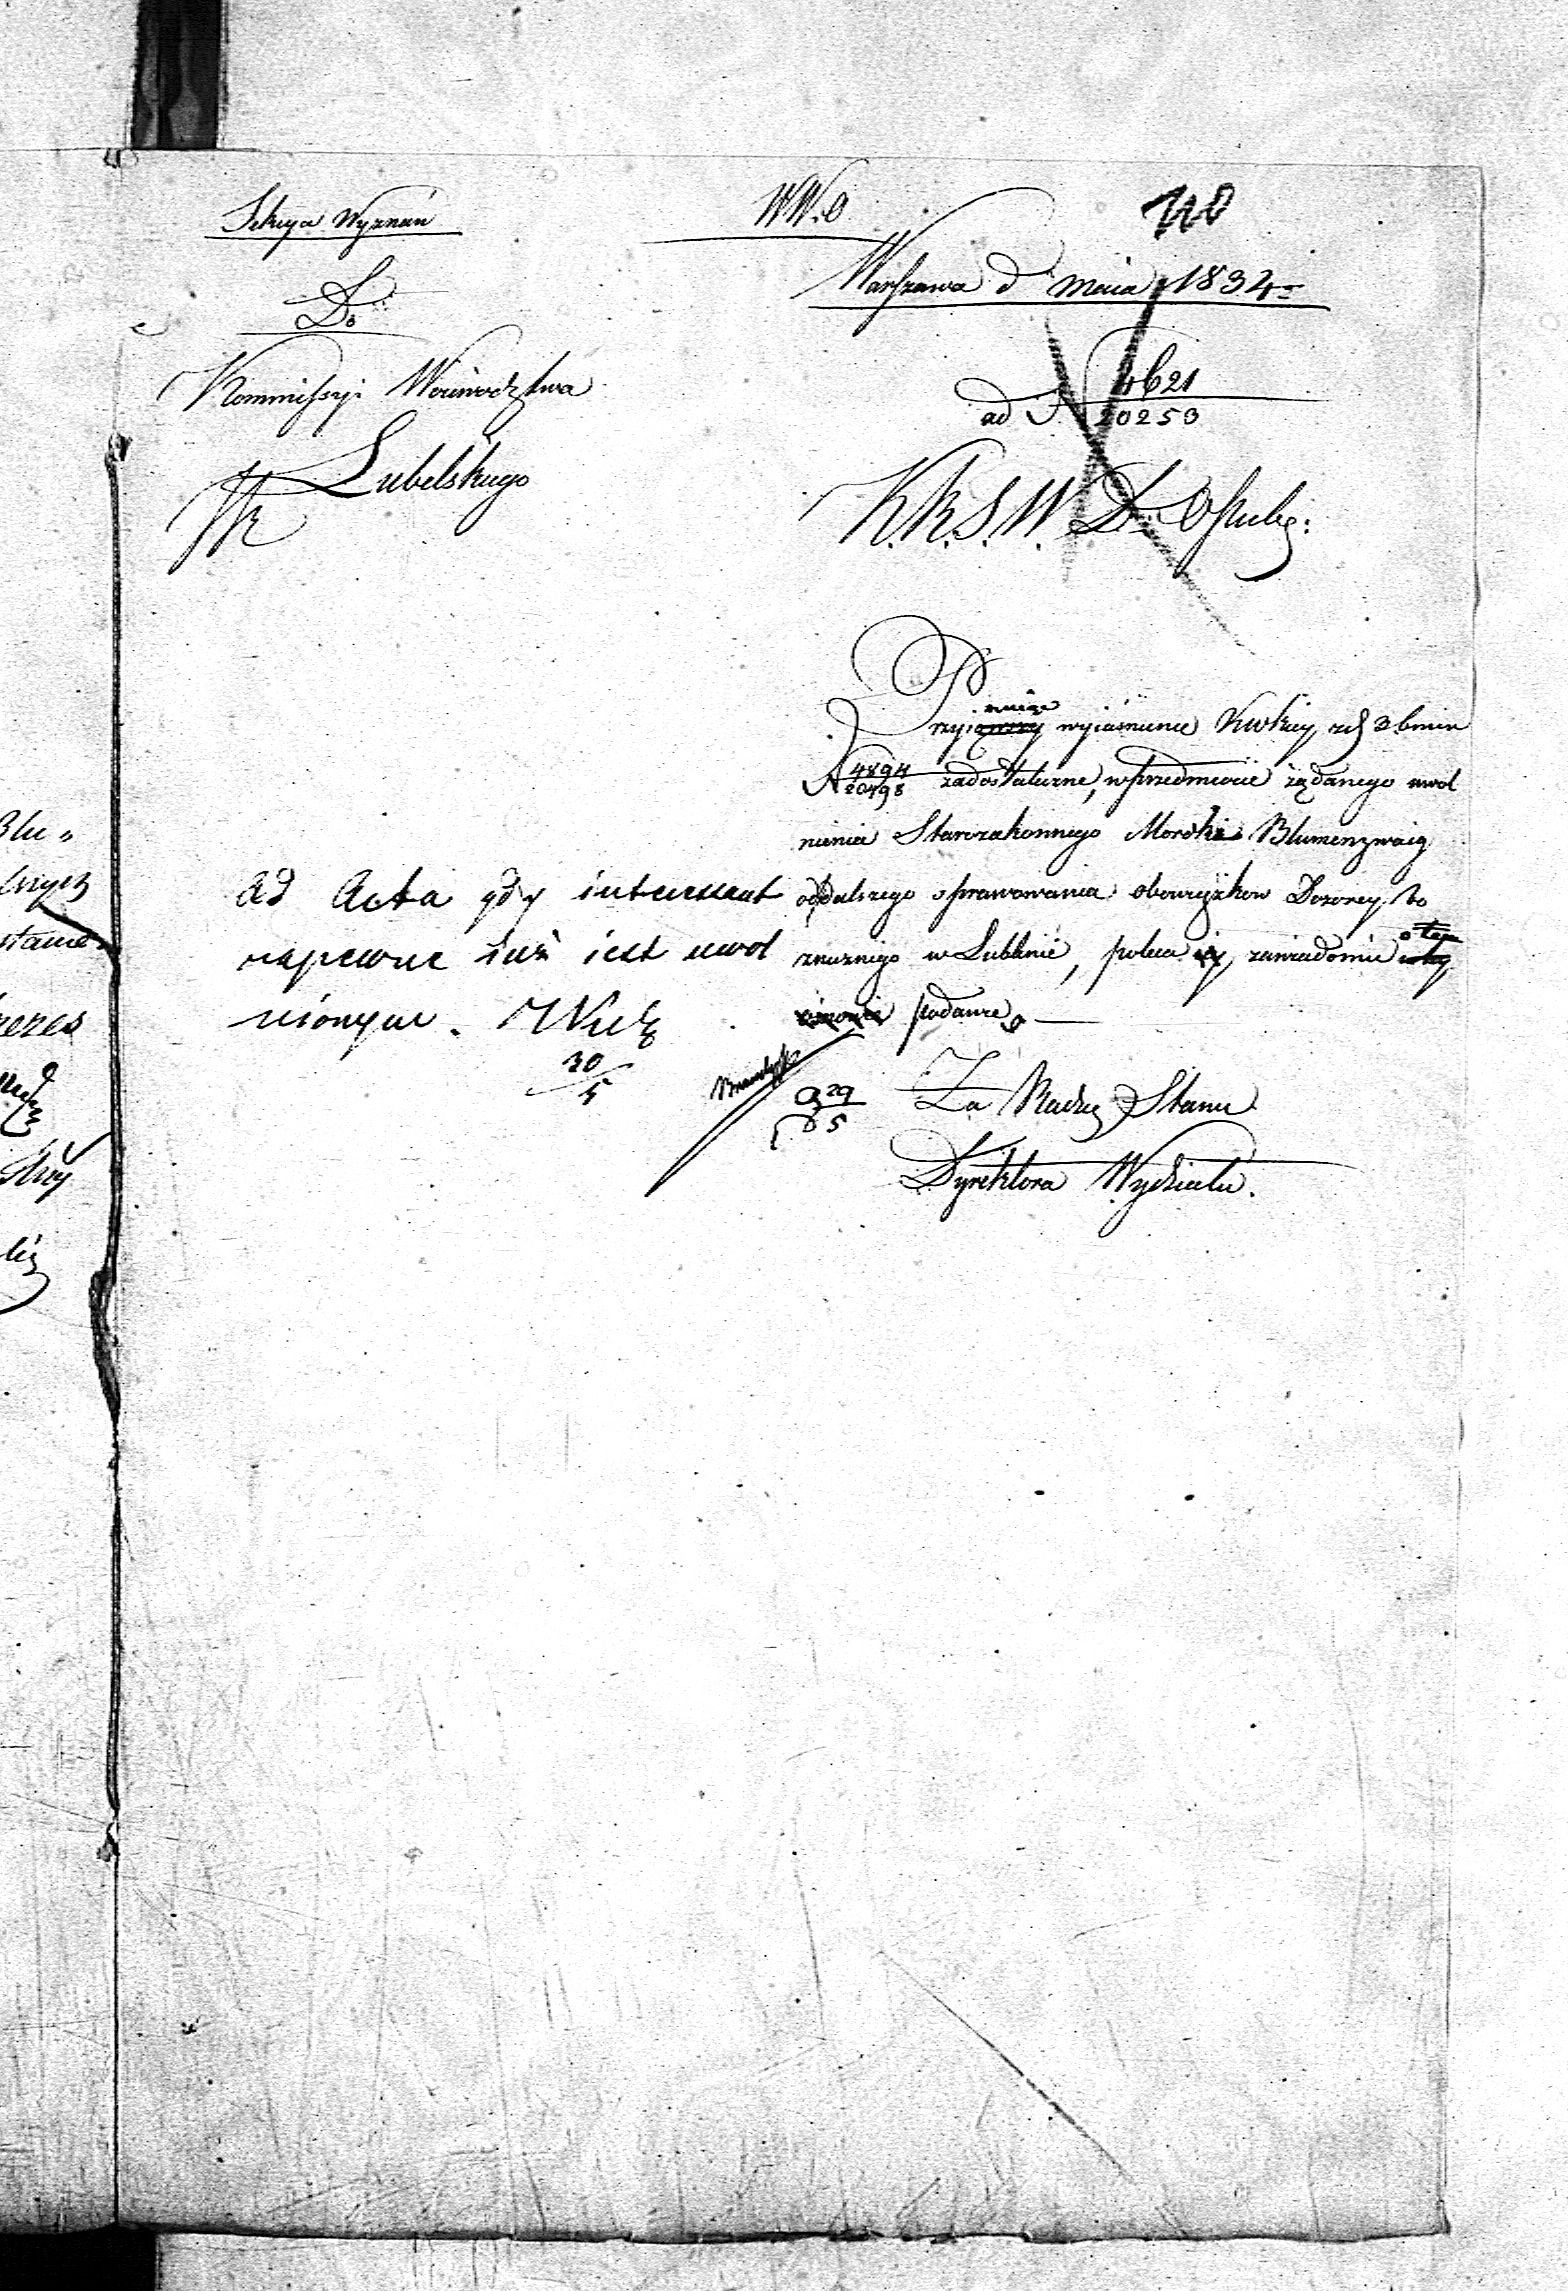 Sekcya Wyznań
WW.O
Warszawa d maia 1834
Do
Kommissyi Woiewodztwa
Lubelskiego
4621
ad N 20253
K.R.S.W. D. i O. Publ:
muiąc
Przyiąwszy wyiaśnienie Kwkiey zd 3 b
N 4894
20498 za dostateczne, w przedmiocie żądanego uwol
nienia Starozakonnego Mordki Blumenzweig
od dalszego sprawowania obowiązkow Dozorcy bo
żniczego w Lublinie, poleca iey, zawiadomić o tem
podawcę
Ad Acta gdy interessent
zapewne iuż iest uwol
nionym.
30
5
29
5
Za Radcę Stanu
Dyrektora Wydziału.